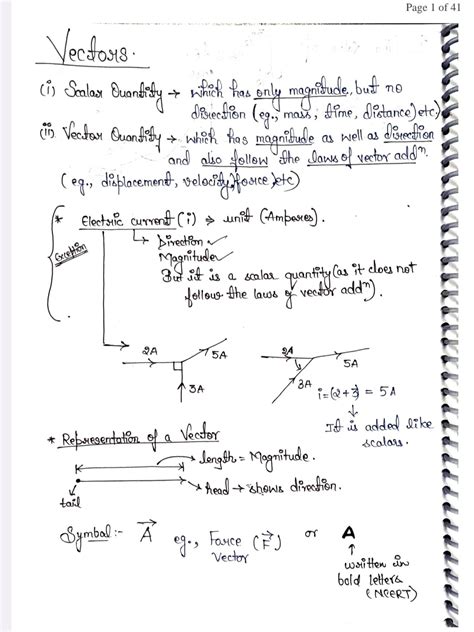 Page 1 of 41
Vectors.
(i) Scalar Quantity → which has only magnitude, but no
direction (eg., mass, time, distance) etc)
(ii) Vector Quantity → which has magnitude as well as direction
and also follow the laws of vector addⁿ.
(eg., displacement, velocity, force, etc)
* Electric current (i) → unit (Amperes).
Exception
→ Direction ✓
Magnitude ✓
But it is a scalar quantity (as it does not
follow the laws of vector addⁿ).
2A 5A 3A
2A 5A 3A
i = (2+3) = 5A
↓
It is added like
scalars.
* Representation of a Vector
→ length = Magnitude.
→ head → shows direction.
tail
Symbol:- A⃗ eg., Force (F⃗) or A
Vector
↑
written in
bold letters
(NCERT)